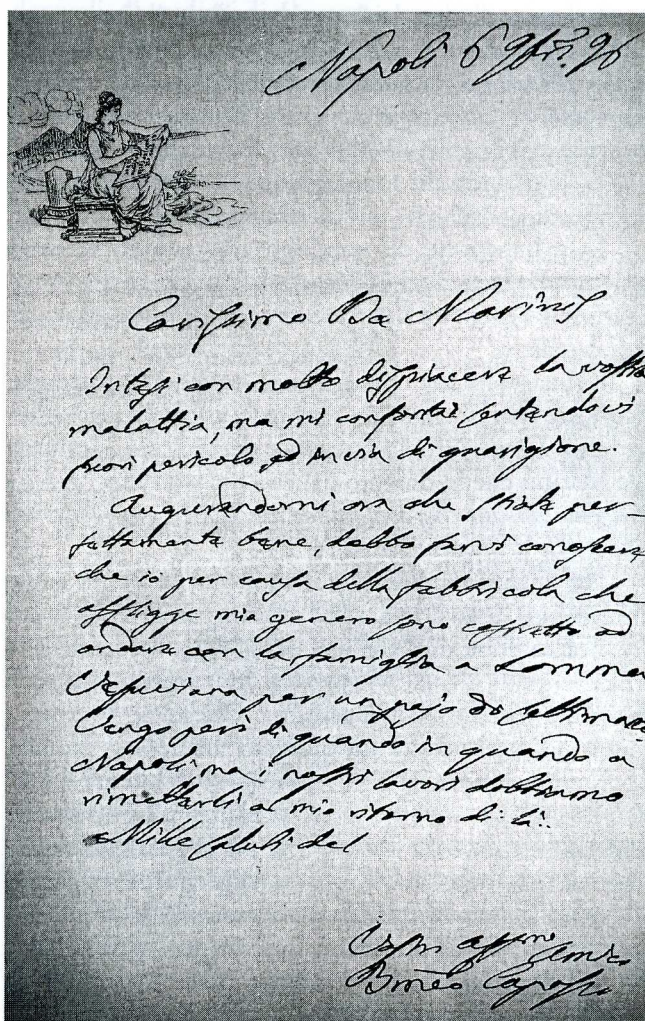 Napoli 6 9bre. 96
Carissimo De Marinis
Intesi con molto dispiacere la vostra
malattia, ma mi confortai sentendovi
fuori pericolo, ed in via di guarigione.
Augurandomi ora che stiate per-
fettamente bene, debbo farvi conoscere
che io per causa della febbricola che
affligge mio genero sono costretto ad
andare con la famiglia a Somma
Vesuviana per un pajo di settimane.
Vengo però di quando in quando a
Napoli, ma i nostri lavori dobbiamo
rimetterli al mio ritorno di là.
Mille saluti del
Vostro affmo Amico
Bmeo Capasso